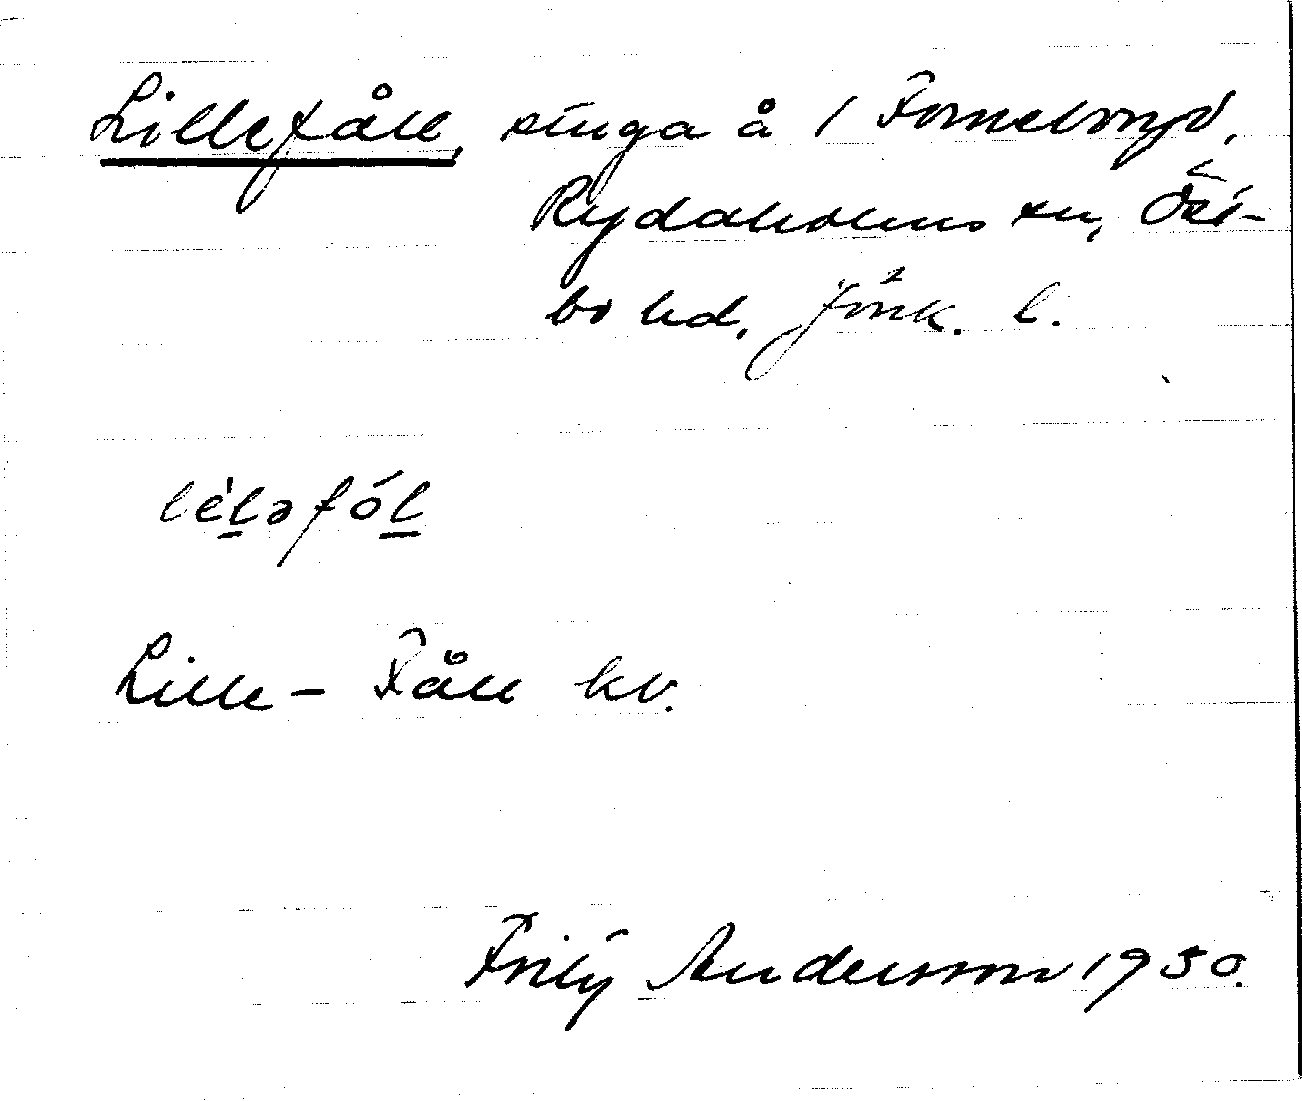 Lillefåll, stuga å 1 Fornebonyd,
Rydaholms sn, Öst-
bo hd, Jönk. l.
lèləfól
Lille-Fåll kv.
Frity Andersson 1930.